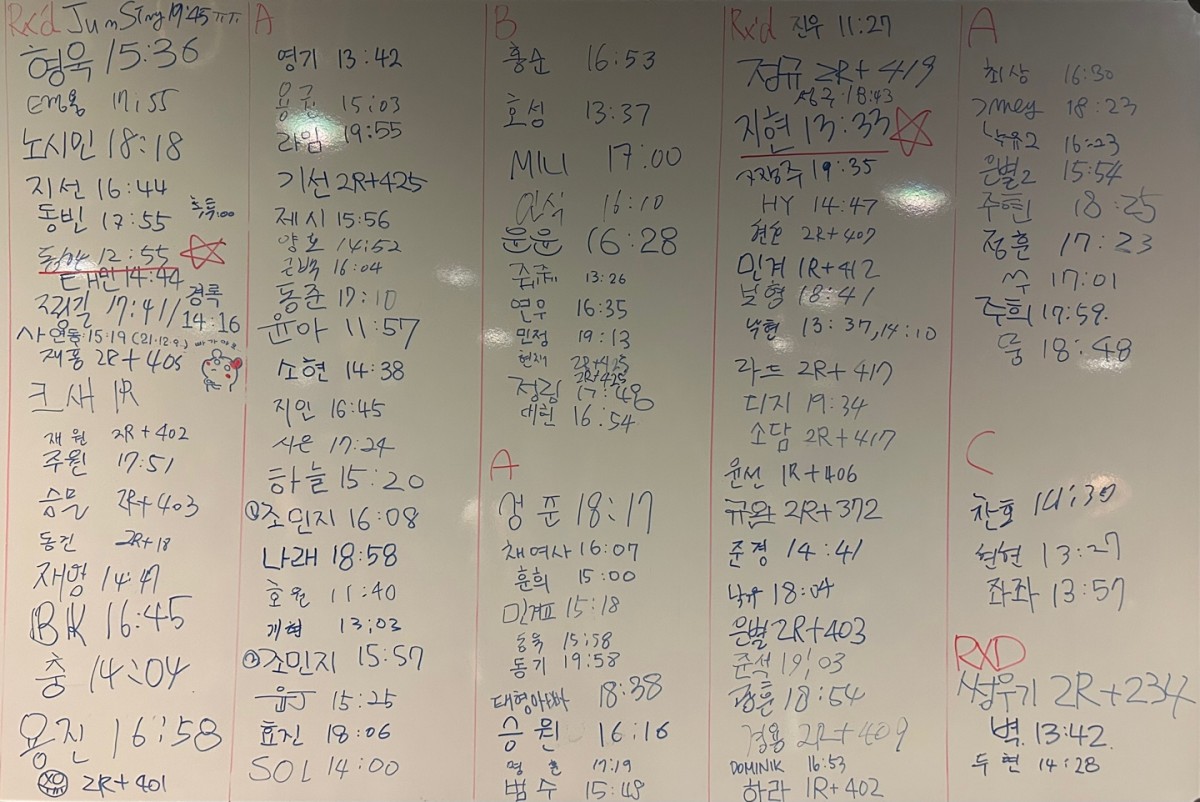 Rx'd JumSing 19:45 ㅠㅠ
형욱 15:36
EM용 17:55
노시민 18:18
지선 16:44
동빈 17:55
12:55
14:44
17:41
경록
14:16
사 연동·15·19 (21·12·9.)
재풍 2R+405
크새 1R
재원 2R+402
주원 17:51
승물 2R+403
동진 2R+18
재왕 14:47
BK 16:45
충 14:04
용진 16:58
2R+401
A
영기 13:42
용근 15:03
라임 19:55
기선 2R+425
제시 15:56
양호 14:52
근백 16:04
동준 17:10
윤아 11:57
소현 14:38
지인 16:45
시은 17:24
하늘 15:20
① 조민지 16:08
나래 18:58
호월 11:40
개형 13:03
② 조민지 15:57
윤J 15:25
효진 18:06
SOL 14:00
B
홍순 16:53
호성 13:37
MINI 17:00
인식 16:10
윤윤 16:28
쥬쥬 13:26
연우 16:35
민정 19:13
현재 2R+425
2R+425
정림 17:48
대헌 16:54
A
성준 18:17
채여사 16:07
훈희 15:00
민계표 15:18
동욱 15:58
동기 19:58
태형아빠 18:38
승원 16:16
영훈 17:19
범수 15:48
Rx'd 진우 11:27
정규 2R+419
성구·18:43
지현 13:33
사장주 19:35
HY 14:47
현윤 2R+407
민계 1R+412
보형 18:41
낙형 13:37, 14:10
라드 2R+417
디지 19:34
소담 2R+417
윤선 1R+406
규완 2R+372
준경 14:41
낙유 18:04
은별 2R+403
준석 19:03
광훈 18:54
경용 2R+409
DOMINIK 16:53
하라 1R+402
A
최상 16:30
Jmey 18:23
낙유2 16:23
은별2 15:54
주현 18:25
정훈 17:23
쑤 17:01
주희 17:59
중 18:48
C
찬호 14:30
현현 13:27
좌좌 13:57
RXD
썽우기 2R+234
벽 13:42
두현 14:28